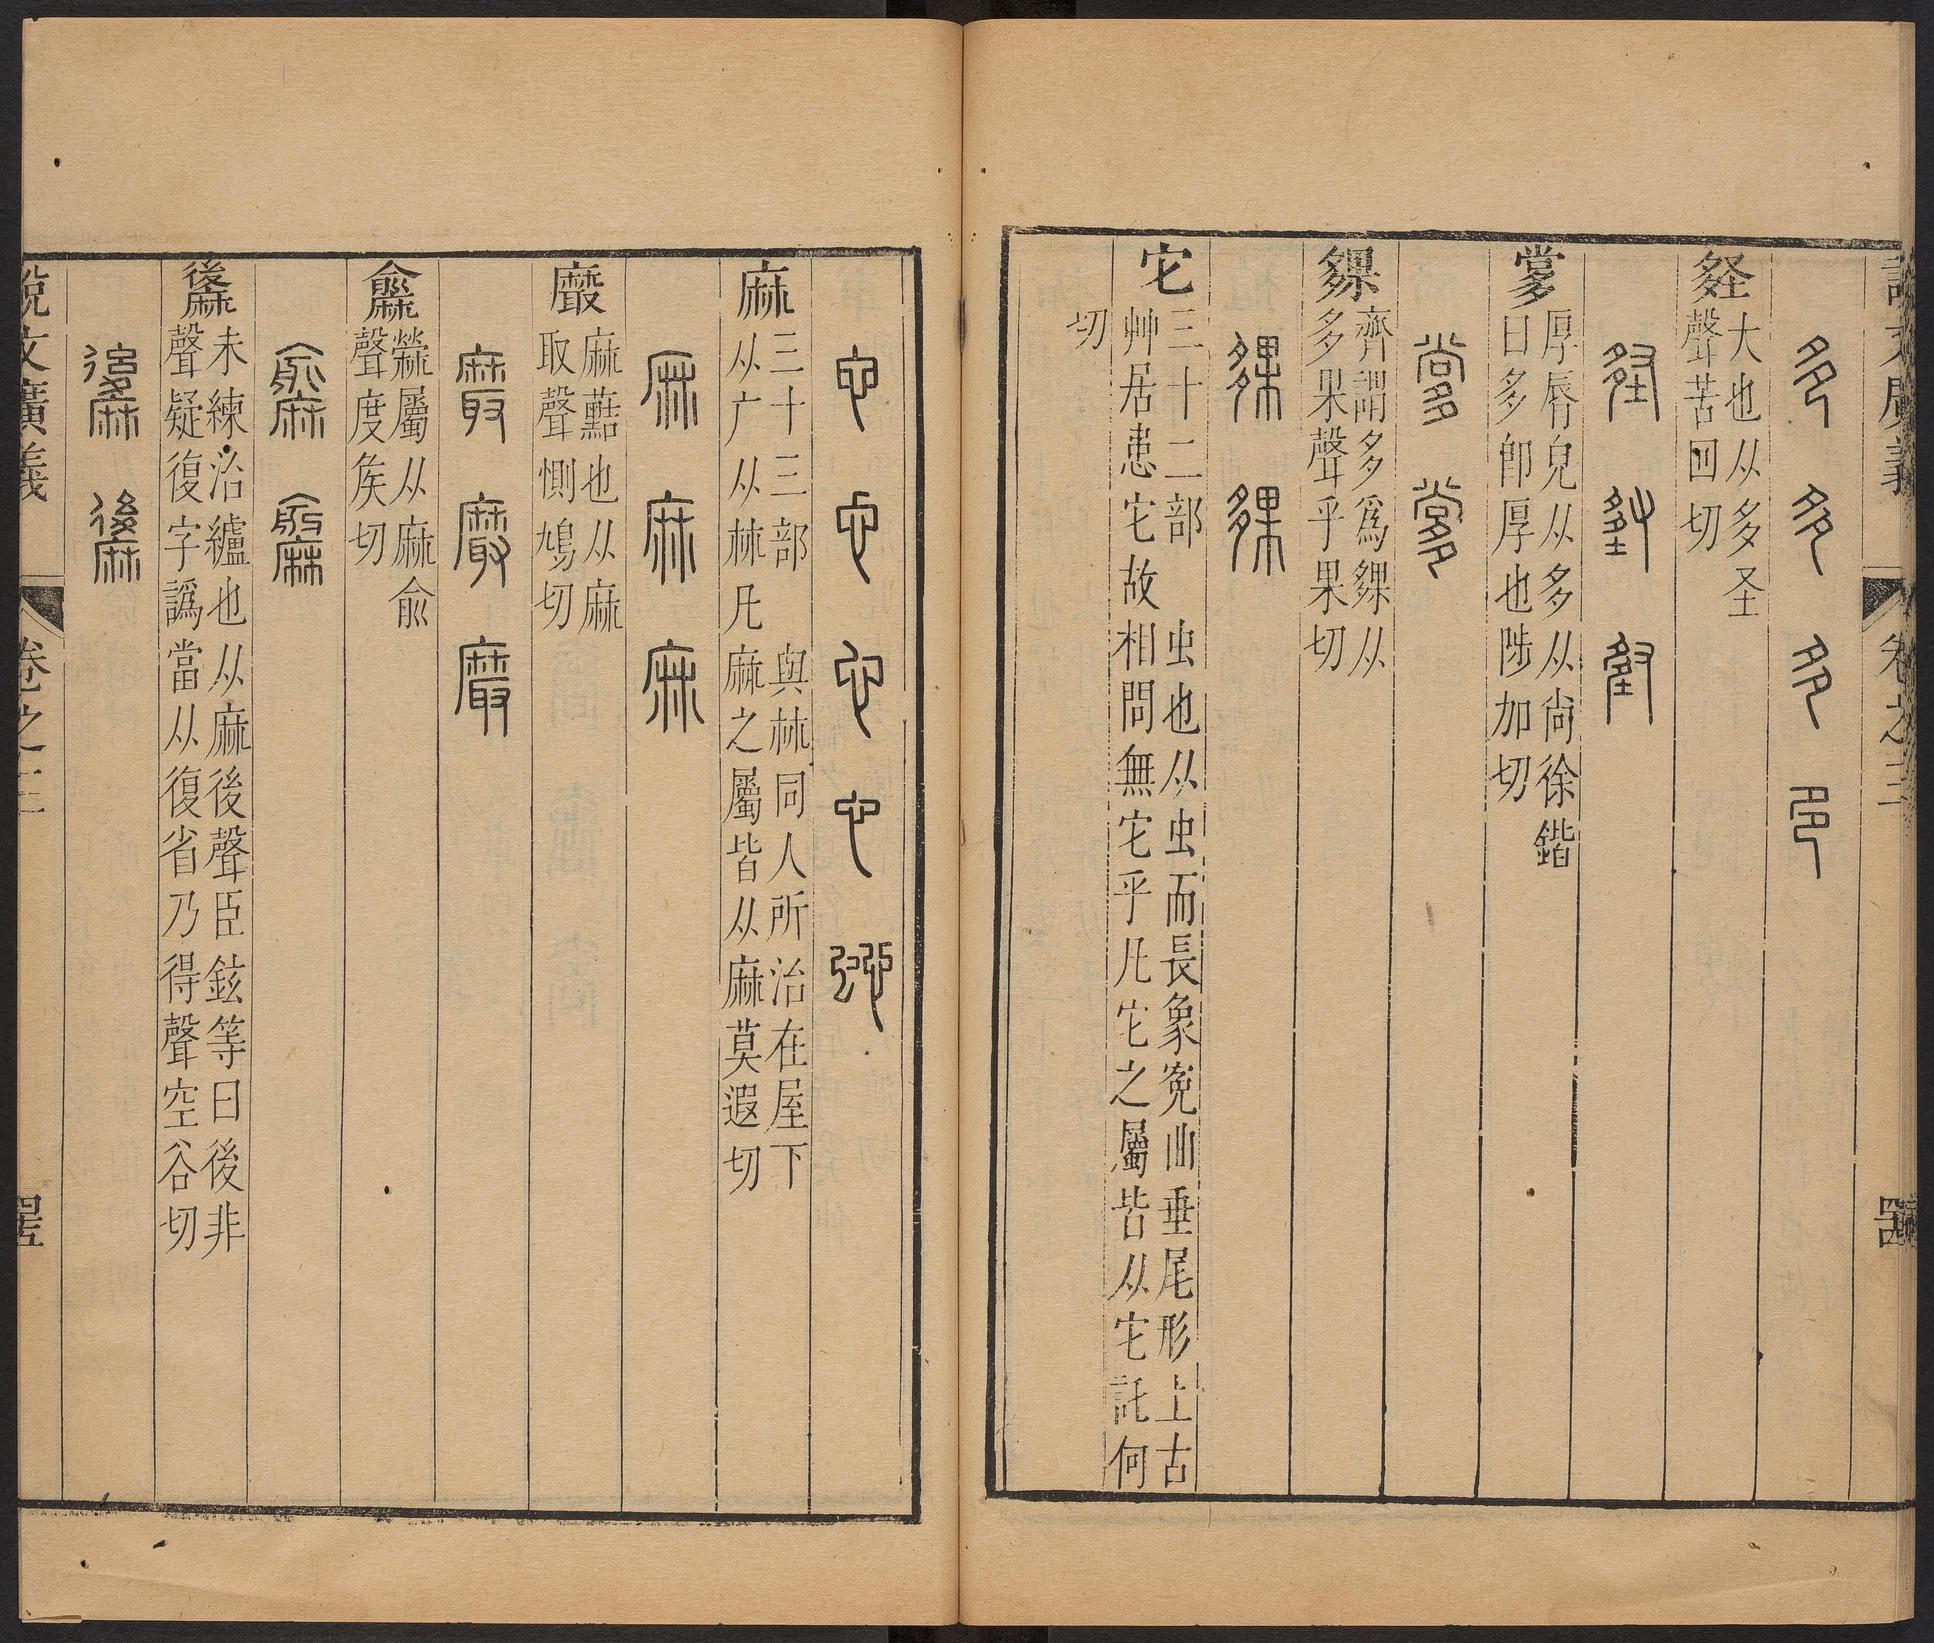 說文廣義 卷之三
多 多 多 多
𡖞 大也从多圣
聲苦回切
𡖞 𡖞 𡖞
𡖓 厚脣皃从多从尚徐鍇
曰多卽厚也陟加切
𡖓 𡖓
夥 齊謂多爲夥从
多果聲乎果切
夥 夥
它 三十二部 虫也从虫而長象寃曲垂尾形上古
艸居患它故相問無它乎凡它之屬皆从它託何
切
它 它 它 它
麻 三十三部 與𣏟同人所治在屋下
从广从𣏟凡麻之屬皆从麻莫遐切
麻 麻 麻
黀 麻藍也从麻
取聲惻鳩切
黀 黀 黀
䵉 檾屬从麻俞
聲度矦切
䵉 䵉
䵇 未練治纑也从麻後聲臣鉉等曰後非
聲疑復字譌當从復省乃得聲空谷切
䵇 䵇
說文廣義 卷之三